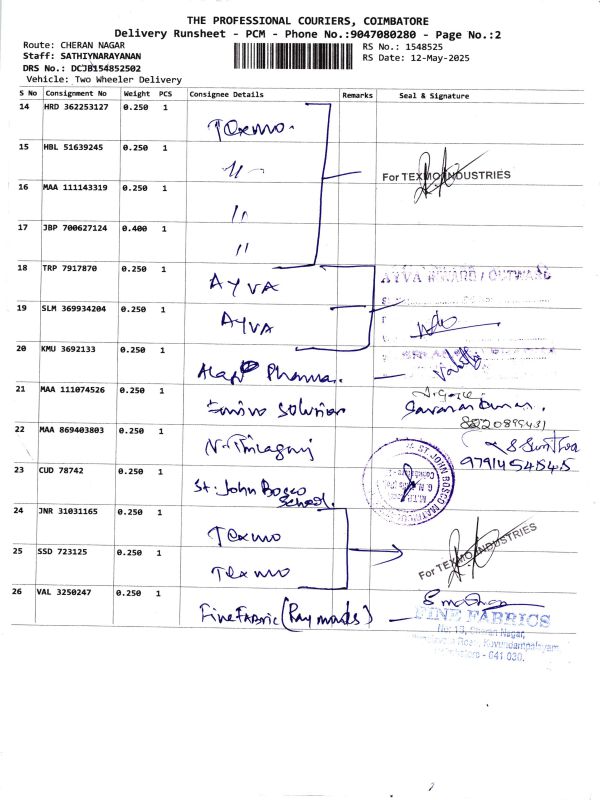 THE PROFESSIONAL COURIERS, COIMBATORE
Delivery Runsheet - PCM - Phone No.:9047080280 - Page No.:2
Route: CHERAN NAGAR RS No.: 1548525
Staff: SATHIYNARAYANAN RS Date: 12-May-2025
DRS No.: DCJB154852502
Vehicle: Two Wheeler Delivery
S No Consignment No Weight PCS Consignee Details Remarks Seal & Signature
14 HRD 362253127 0.250 1
Texmo.
15 HBL 51639245 0.250 1
For TEXMO INDUSTRIES
16 MAA 111143319 0.250 1
17 JBP 700627124 0.400 1
18 TRP 7917870 0.250 1
AYVA AYVA INWARD / OUTWARD
19 SLM 369934204 0.250 1
AYVA
20 KMU 3692133 0.250 1
Pharma.
21 MAA 111074526 0.250 1
Solution Saravanakumar.
22 MAA 869403803 0.250 1
8220899431
N. Thilagraj
9791454545
23 CUD 78742 0.250 1
ST. JOHN BOSCO
St. John Bosco
School.
24 JNR 31031165 0.250 1
Texmo
25 SSD 723125 0.250 1
For TEXMO INDUSTRIES
Texmo
26 VAL 3250247 0.250 1
Fine Fabric (Raymonds) FINE FABRICS
No: 13, Cheran Nagar,
Road, Kavundampalayam,
Coimbatore - 641 030.